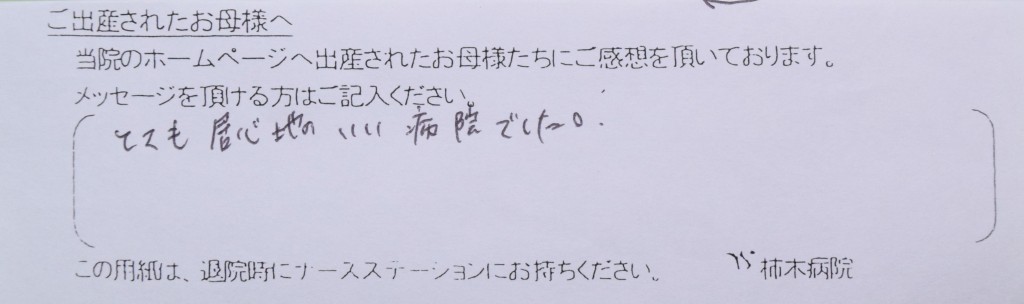 ご出産されたお母様へ
当院のホームページへ出産されたお母様たちにご感想を頂いております。
メッセージを頂ける方はご記入ください。
とても居心地のいい病院でした。
この用紙は、退院時にナースステーションにお持ちください。 柿木病院